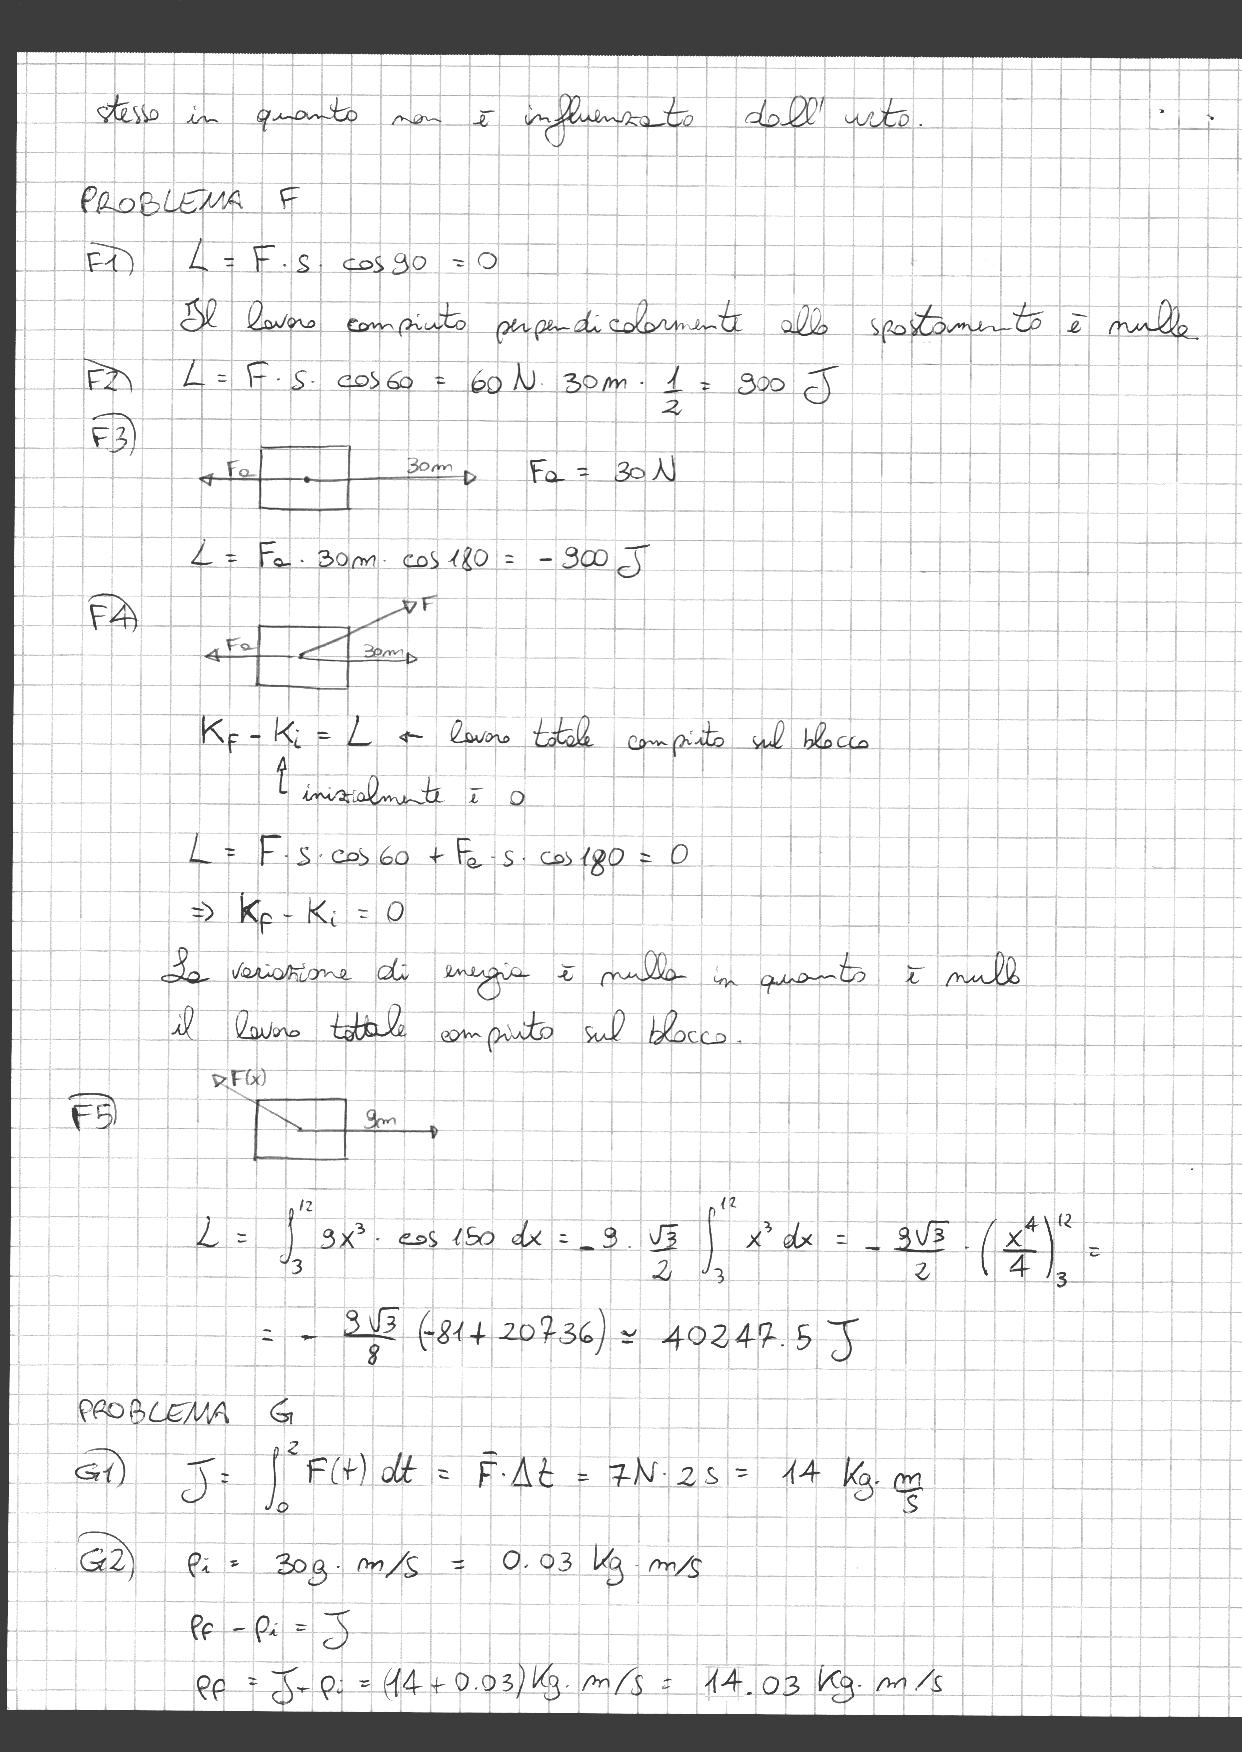 stesso in quanto non è influenzato dall'urto.
PROBLEMA F
F1) L = F · s · cos 90 = 0
Il lavoro compiuto perpendicolarmente allo spostamento è nullo
F2) L = F · s · cos 60 = 60 N · 30 m · 1/2 = 900 J
F3)
Fa 30m Fa = 30 N
L = Fa · 30 m · cos 180 = - 900 J
F4) F
Fa 30m
KF - Ki = L ← lavoro totale compiuto sul blocco
inizialmente è 0
L = F · s · cos 60 + Fa · s · cos 180 = 0
⇒ KF - Ki = 0
La variazione di energia è nulla in quanto è nullo
il lavoro totale compiuto sul blocco.
F(x)
F5) 9m
L = ∫₃¹² 9x³ · cos 150 dx = - 9 · √3/2 ∫₃¹² x³ dx = - 9√3/2 · (x⁴/4)₃¹² =
= - 9√3/8 (-81 + 20736) ≃ 40247.5 J
PROBLEMA G
G1) J = ∫₀² F(t) dt = F̄ · Δt = 7N · 2 s = 14 Kg · m/s
G2) Pi = 30g · m/s = 0.03 Kg · m/s
Pf - Pi = J
Pf = J + Pi = (14 + 0.03) Kg · m/s = 14.03 Kg · m/s